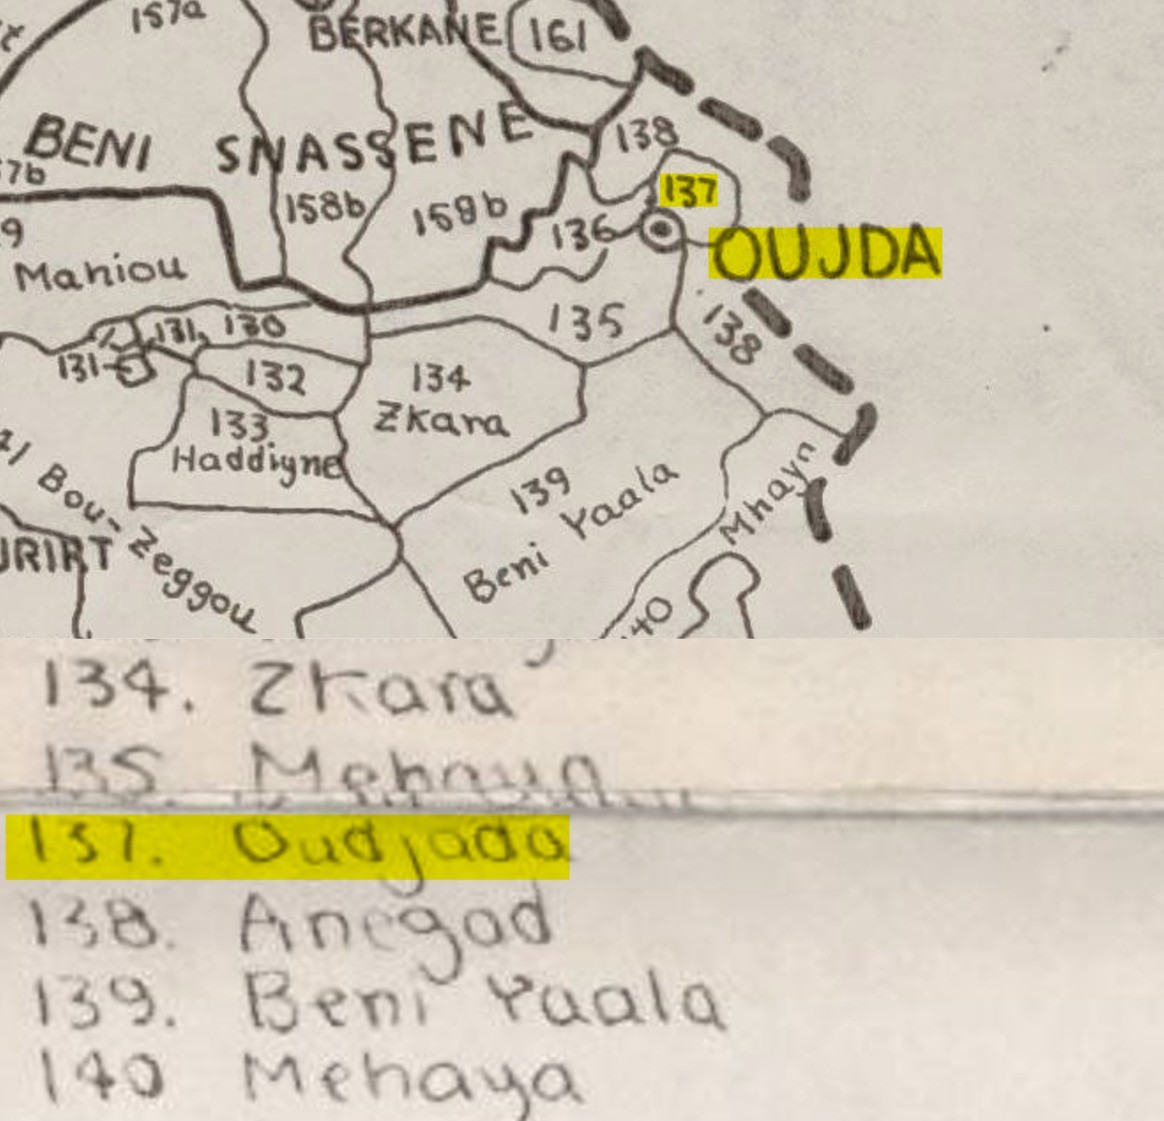 157a
BERKANE
161
BENI SNASSENE
138
57b
137
158b
159b
136
OUJDA
9
Mahiou
131
130
135
138
131
132
134
Zkara
133
Haddiyne
139
Beni Yaala
Mhayn
Bou-Zeggou
URIRT
140
134. Zkara
135 Mehaya
137. Oudjada
138. Anegad
139. Beni Yaala
140 Mehaya